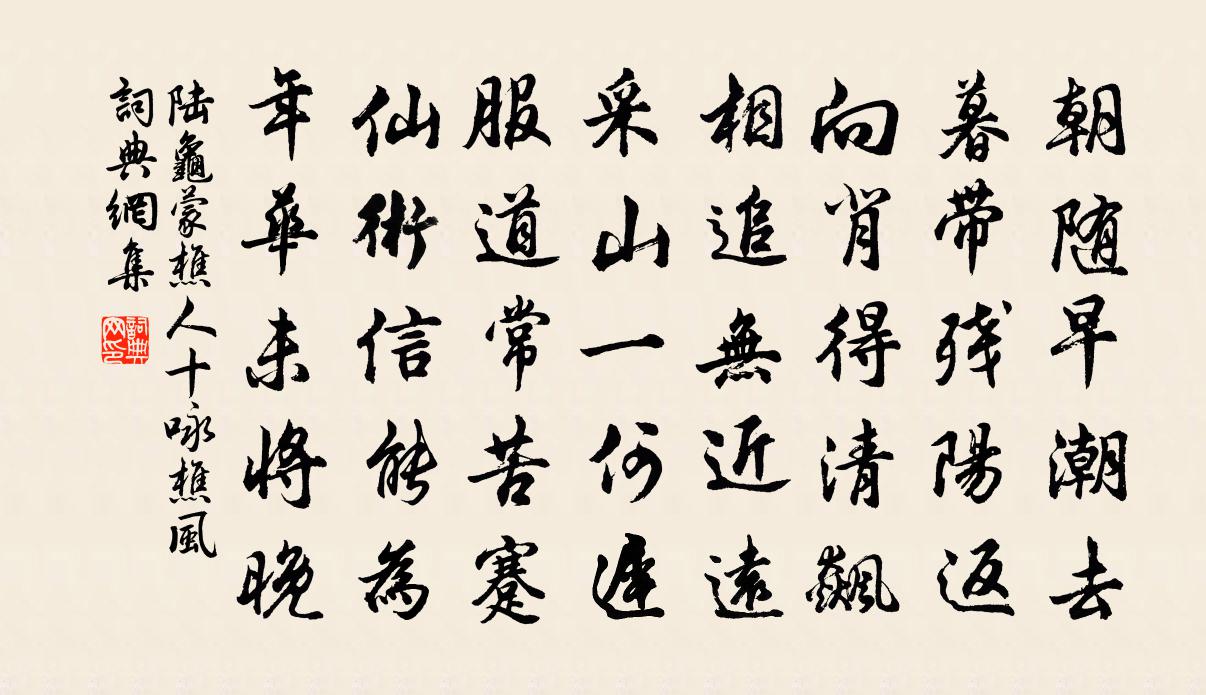 朝随早潮去
暮带残陽返
向肖得清飆
相追無近遠
采山一何遲
服道常苦蹇
仙術信能為
年華未將晚
陆龜蒙樵人十咏樵風
詞典網集
詞典网印